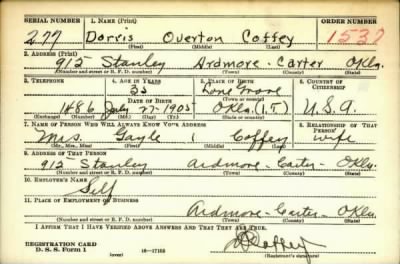 SERIAL NUMBER 1. NAME (Print) ORDER NUMBER
277 Dorris Overton Coffey 1537
(First) (Middle) (Last)
2. ADDRESS (Print)
912 Stanley Ardmore - Carter Okla.
(Number and street or R. F. D. number) (Town) (County) (State)
3. TELEPHONE 4. AGE IN YEARS 5. PLACE OF BIRTH 6. COUNTRY OF CITIZENSHIP
35 Lone Grove
(Town or county)
1486 DATE OF BIRTH
July 27 1905 Okla (I.T.) U.S.A.
(Exchange) (Number) (Mo.) (Day) (Yr.) (State or country)
7. NAME OF PERSON WHO WILL ALWAYS KNOW YOUR ADDRESS 8. RELATIONSHIP OF THAT PERSON
Mrs. Gayle Coffey wife
(Mr., Mrs., Miss) (First) (Middle) (Last)
9. ADDRESS OF THAT PERSON
912 Stanley Ardmore - Carter - Okla.
(Number and street or R. F. D. number) (Town) (County) (State)
10. EMPLOYER'S NAME
Self
11. PLACE OF EMPLOYMENT OR BUSINESS
Ardmore - Carter - Okla
(Number and street or R. F. D. number) (Town) (County) (State)
I AFFIRM THAT I HAVE VERIFIED ABOVE ANSWERS AND THAT THEY ARE TRUE.
REGISTRATION CARD
D. S. S. Form 1 (over) 16-17105 (Registrant's signature)